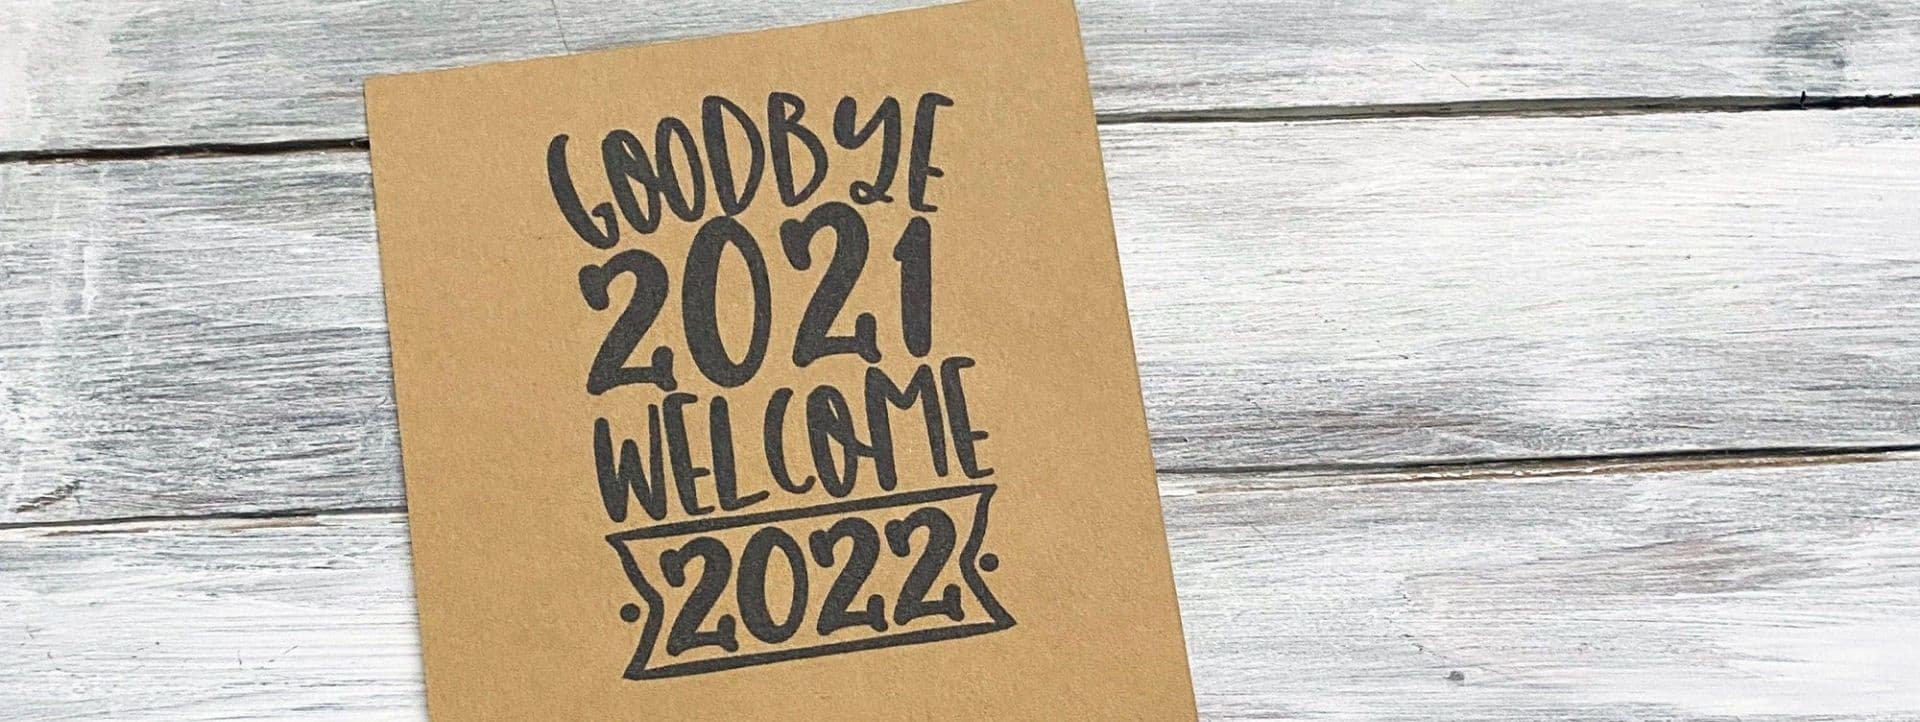 GOODBYE
2021
WELCOME
2022